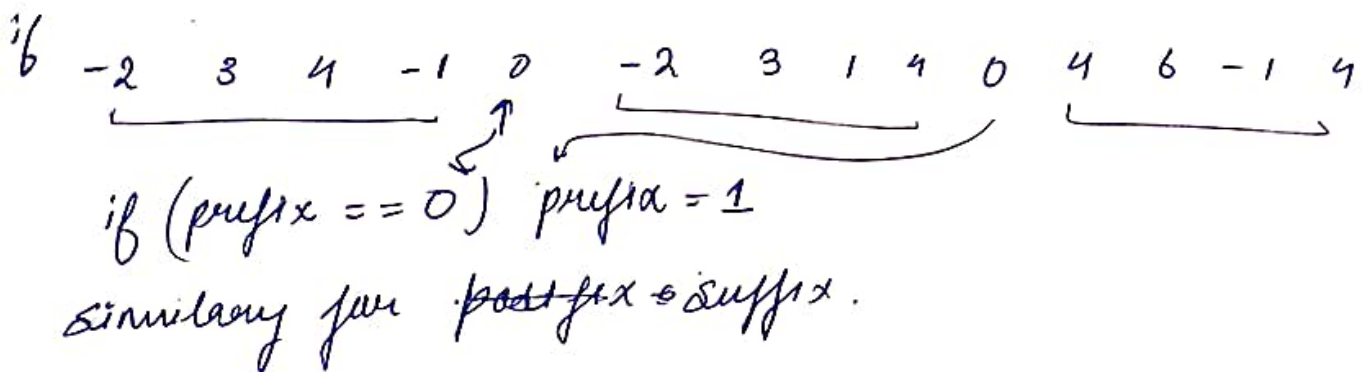 if -2 3 4 -1 0 -2 3 1 4 0 4 6 -1 4
if (prefix == 0) prefix = 1
similarly for postfix suffix.